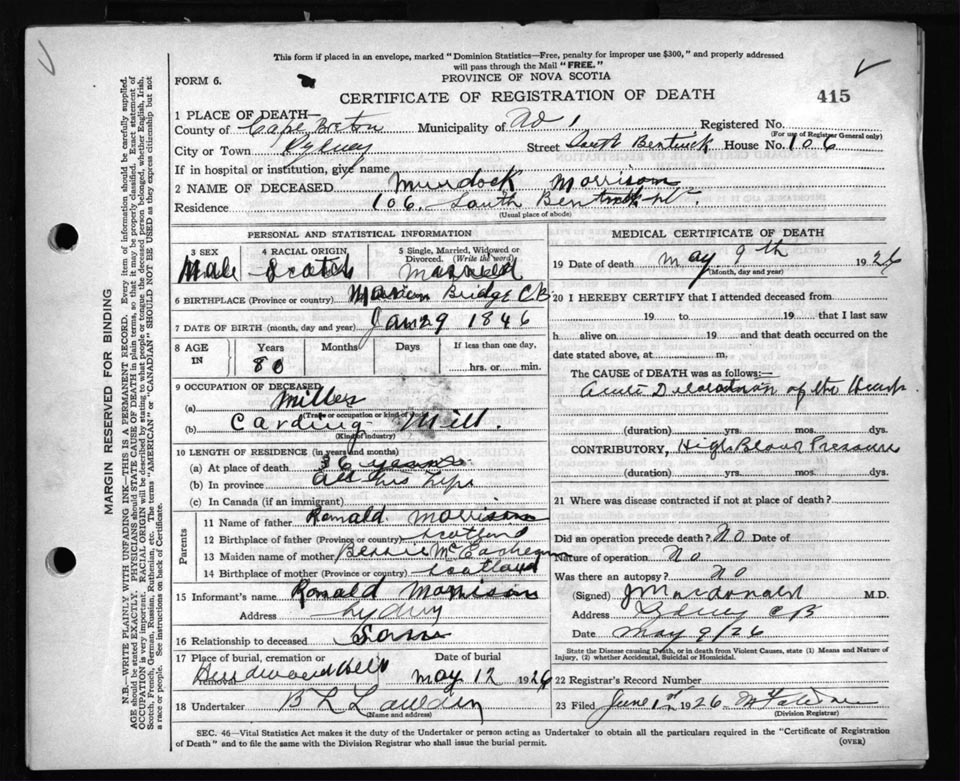 This form if placed in an envelope, marked "Dominion Statistics—Free, penalty for improper use $300," and properly addressed
will pass through the Mail "FREE."
FORM 6.
PROVINCE OF NOVA SCOTIA
CERTIFICATE OF REGISTRATION OF DEATH
415
1 PLACE OF DEATH—
County of Cape Breton Municipality of No 1 Registered No.
(For use of Registrar General only)
City or Town Sydney Street South Bentinck House No. 106
If in hospital or institution, give name
2 NAME OF DECEASED Murdock Morrison
Residence 106. South Bentinck St.
(Usual place of abode)
PERSONAL AND STATISTICAL INFORMATION
3 SEX 4 RACIAL ORIGIN 5 Single, Married, Widowed or Divorced. (Write the word)
Male Scotch Married
6 BIRTHPLACE (Province or country) Marion Bridge C.B.
7 DATE OF BIRTH (month, day and year) Jan 29 1846
8 AGE IN Years Months Days If less than one day,
80 hrs. or min.
9 OCCUPATION OF DECEASED
(a) Miller
(Trade or occupation or kind of
(b) Carding Mill.
(Kind of industry)
10 LENGTH OF RESIDENCE (in years and months)
(a) At place of death 36 years
(b) In province all his life
(c) In Canada (if an immigrant)
Parents
11 Name of father Ronald Morrison
12 Birthplace of father (Province or country) Scotland
13 Maiden name of mother Bessie McEachern
14 Birthplace of mother (Province or country) Scotland
15 Informant's name Ronald Morrison
Address Sydney
16 Relationship to deceased Son
17 Place of burial, cremation or removal Date of burial
May 12 1926
18 Undertaker B L
(Name and address)
MEDICAL CERTIFICATE OF DEATH
19 Date of death May 9th 1926
(Month, day and year)
20 I HEREBY CERTIFY that I attended deceased from
19 to 19 that I last saw
h alive on 19 and that death occurred on
date stated above, at m.
The CAUSE of DEATH was as follows:—
Acute Dilatation of the Heart
(duration) yrs. mos. dys.
CONTRIBUTORY, High Blood Pressure
(duration) yrs. mos. dys.
21 Where was disease contracted if not at place of death?
Did an operation precede death? No Date of
Nature of operation No
Was there an autopsy? no
(Signed) J Macdonald M.D.
Address Sydney CB
Date May 9/26
State the Disease causing Death, or in death from Violent Causes, state (1) Means and Nature of
Injury, (2) whether Accidental, Suicidal or Homicidal.
22 Registrar's Record Number
23 Filed June 1926
(Division Registrar)
SEC. 46—Vital Statistics Act makes it the duty of the Undertaker or person acting as Undertaker to obtain all the particulars required in the "Certificate of Registration
of Death" and to file the same with the Division Registrar who shall issue the burial permit.
(OVER)
MARGIN RESERVED FOR BINDING
N.B.—WRITE PLAINLY WITH UNFADING INK—THIS IS A PERMANENT RECORD. Every item of information should be carefully supplied.
AGE should be stated EXACTLY. PHYSICIANS should STATE CAUSE OF DEATH in plain terms, so that it may be properly classified. Exact statement of
OCCUPATION is very important. RACIAL ORIGIN will be described by stating to what people or tongue the deceased person belonged, whether English, Irish,
Scotch, French, German, Russian, Ruthenian, etc. The terms "AMERICAN" or "CANADIAN" SHOULD NOT BE USED as they express citizenship but not
a race or people. See instructions on back of Certificate.